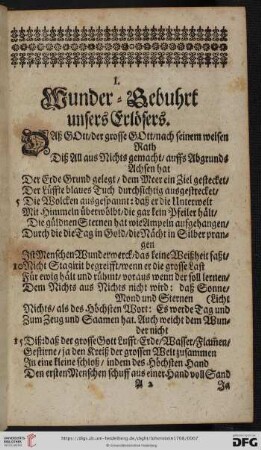 I.
Wunder-Gebuhrt
unsers Erlösers.
DAß GOtt/der grosse GOtt/nach seinem weisen
Rath
Diß All aus Nichts gemacht/auffs Abgrunds
Achsen hat
Der Erde Grund gelegt/dem Meer ein Ziel gestecket/
Der Lüffte blaues Tuch durchsichtig ausgestrecket/
5 Die Wolcken ausgespannt: daß er die Unterwelt
Mit Himmeln überwölbt: die gar kein Pfeiler hält/
Die güldnen Sternen hat wie Ampeln aufgehangen/
Durch die die Tag in Gold/die Nächt in Silber pran-
gen
Ist Menschen Wunderwerck/das keine Weißheit faßt/
10 Nicht Stagirit begreifft/wenn er die grosse Last
Für ewig hält und rühmt/voraus wenn der soll lernen/
Dem Nichts aus Nichts nicht wird: daß Sonne/
Mond und Sternen (Licht
Nichts/als des Höchsten Wort: Es werde Tag und
Zum Zeug und Saamen hat. Auch weicht dem Wun-
der nicht
15 Diß: daß der grosse Gott Lufft/Erde/Wasser/Flam̃en/
Gestirne/ja den Kreiß der grossen Welt zusammen
In eine kleine schloß/indem des Höchsten Hand
Den ersten Menschen schuff aus einer Hand voll Sand
A 2 Ja
https://digi.ub.uni-heidelberg.de/diglit/lohenstein1708/0597
© Universitätsbibliothek Heidelberg
gefördert durch die
DFG